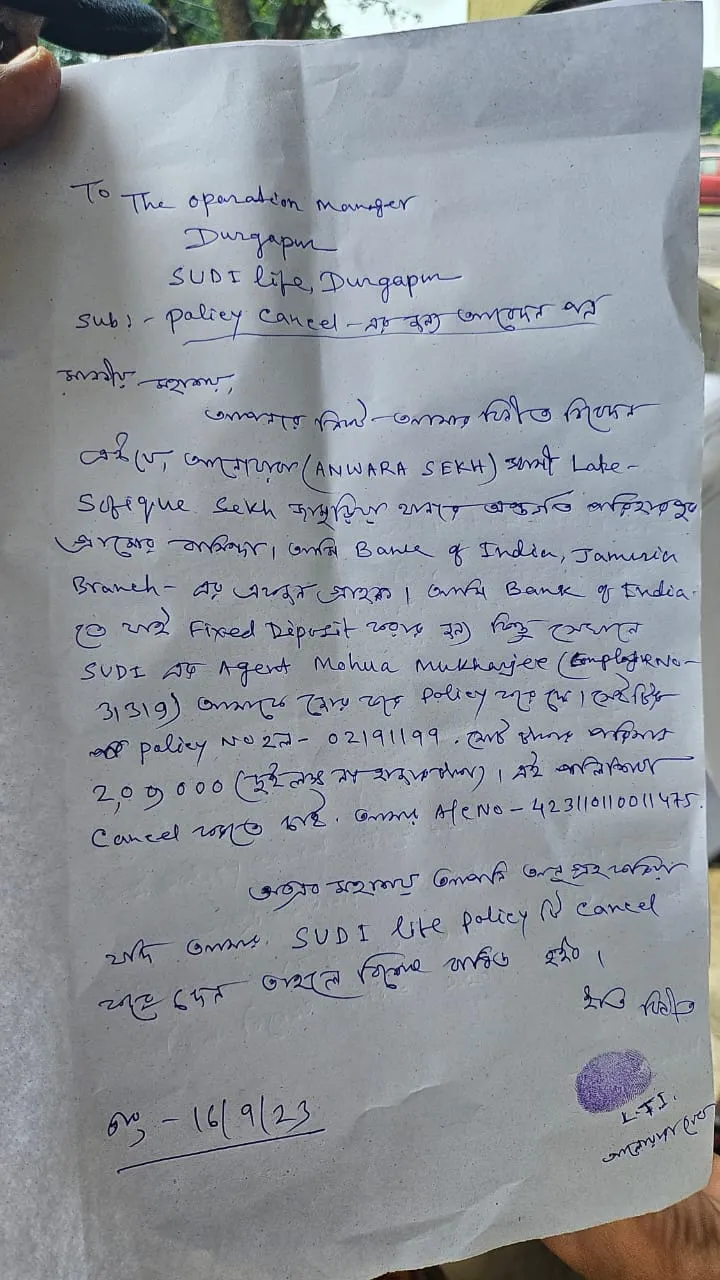 To The oparation manager
Durgapur
SUDI life, Durgapur
Sub:- Policy Cancel-এর জন্য আবেদন পত্র
মাননীয় মহাশয়,
আপনার নিকট আমার বিনীত নিবেদন
এই যে, আনোয়ারা (ANWARA SEKH) স্বামী Late-
Sofique Sekh জামুরিয়া থানার অন্তর্গত পরিহারপুর
গ্রামের বাসিন্দা। আমি Bank of India, Jamuria
Branch- এর একজন গ্রাহক। আমি Bank of India-
তে যাই Fixed Deposit করার জন্য কিন্তু সেখানে
SUDI এর Agent Mohua Mukharjee (Employee No-
31319) আমাকে জোর করে Policy করে দেয়। সেইটির
policy No হল- 02191199. মোট টাকার পরিমান
2,09000 (দুইলক্ষ নয় হাজার টাকা)। এই পলিশিটা
Cancel করতে চাই. আমার A/C No - 423110110011475.
অতএব মহাশয় আপনি অনুগ্রহ করিয়া
যদি আমার SUDI life policy টি Cancel
করে দেন তাহলে বিশেষ বাধিত হইব।
ইতি বিনীত
তাং - 16/9/23
L.T.I.
আনোয়ারা সেখ